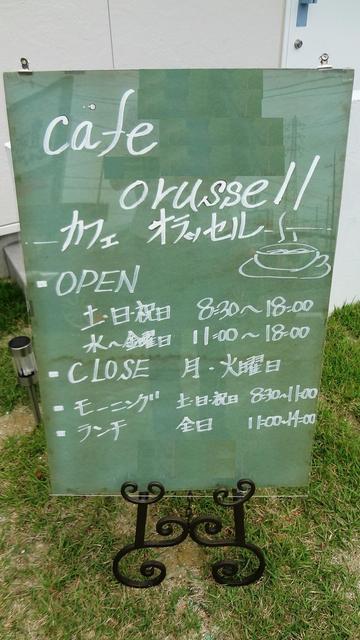 cafe
orussell
カフェ オラッセル
OPEN
土・日・祝日 8:30〜18:00
水〜金曜日 11:00〜18:00
CLOSE 月・火曜日
モーニング 土・日・祝日 8:30〜11:00
ランチ 全日 11:00〜14:00